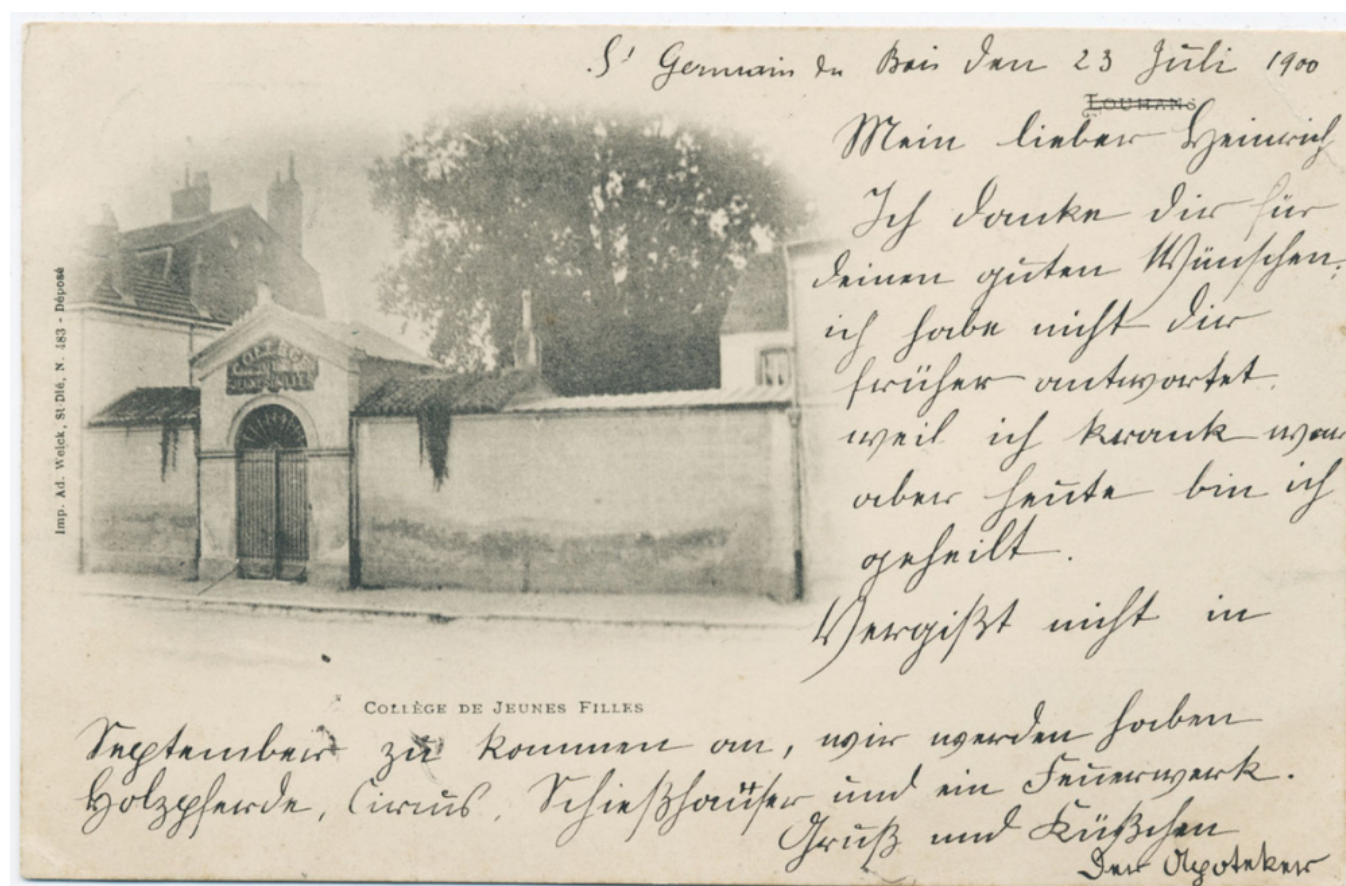 St Germain du Bois den 23 Juli 1900
LOUHANS
Mein lieber Heinrich
Ich danke dir für
deinen guten Wünschen,
ich habe nicht dir
früher antwortet.
weil ich krank war
aber heute bin ich
geheilt.
Vergißt nicht in
COLLÈGE DE JEUNES FILLES
September zu kommen an, wir werden haben
Holzpferde, Circus, Schießhaüser und ein Feuerwerk.
Gruß und Küßchen
Der Apoteker
Imp. Ad. Weick, St-Dié, N. 483 - Déposé
COLLÈGE